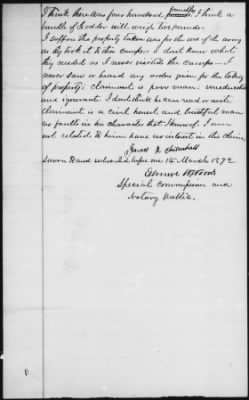 I think there was four hundred bundles I think a
bundle of fodder will weigh two pounds.
I suppose the property taken was for the use of the army
as they took it to their camps. I don't know what
they needed as I never visited the camps. I
never saw or heard any orders given for the taking
of property; claimant is a poor man: uneducated
and ignorant. I don't think he can read or write
claimant is a civil honest and truthful man
no faults in his character that I know of. I am
not related to him, have no interest in this claim
James R
Sworn to and subscribed before me 14 March 1872
Special Commissioner and
Notary Public.